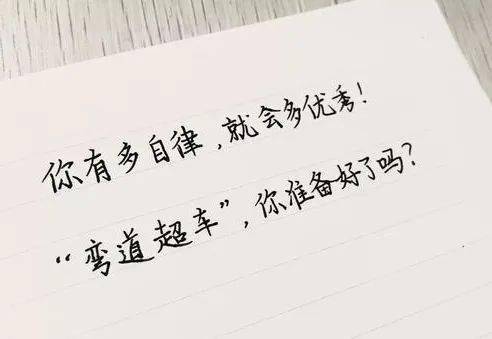 你有多自律,就会多优秀!
“弯道超车”,你准备好了吗?